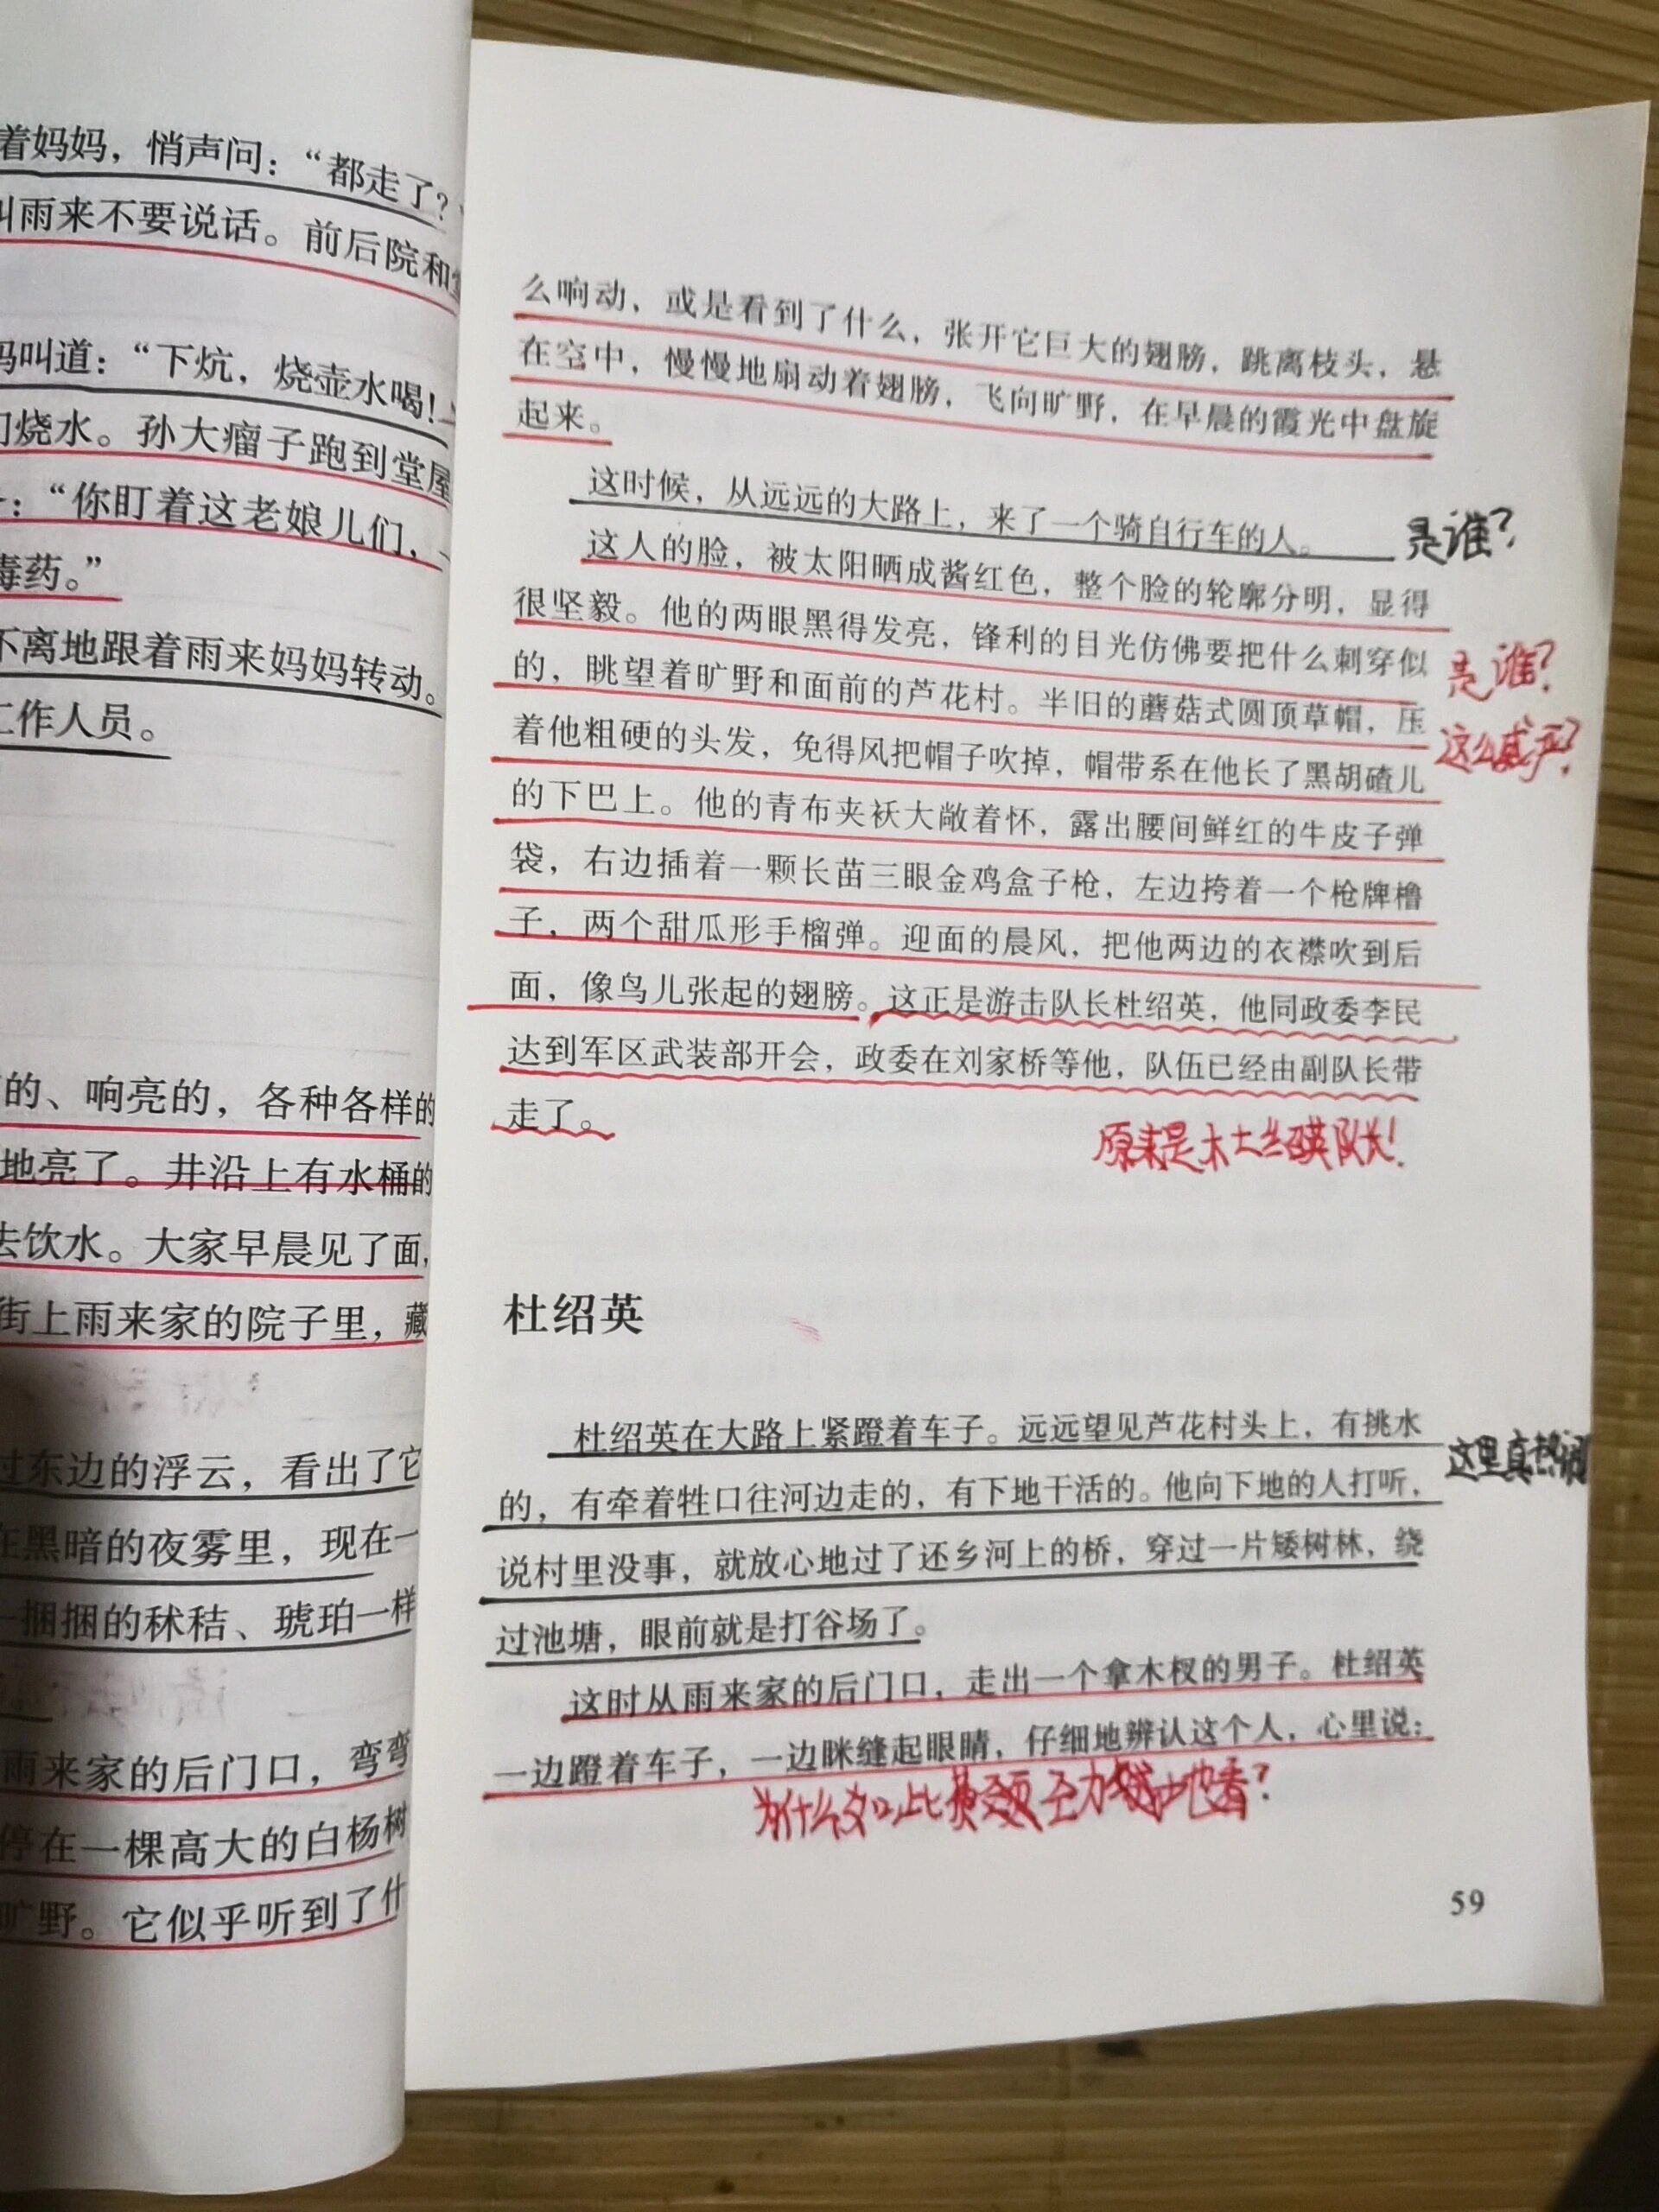 着妈妈，悄声问：“都走了？
叫雨来不要说话。前后院和
妈叫道：“下炕，烧壶水喝！
们烧水。孙大瘤子跑到堂屋
：“你盯着这老娘儿们，
毒药。”
不离地跟着雨来妈妈转动。
工作人员。
的、响亮的，各种各样的
地亮了。井沿上有水桶的
去饮水。大家早晨见了面，
街上雨来家的院子里，藏
过东边的浮云，看出了它
在黑暗的夜雾里，现在一
一捆捆的秫秸、琥珀一样
雨来家的后门口，弯弯
停在一棵高大的白杨树
旷野。它似乎听到了什
么响动，或是看到了什么，张开它巨大的翅膀，跳离枝头，悬
在空中，慢慢地扇动着翅膀，飞向旷野，在早晨的霞光中盘旋
起来。
这时候，从远远的大路上，来了一个骑自行车的人。 是谁？
这人的脸，被太阳晒成酱红色，整个脸的轮廓分明，显得
很坚毅。他的两眼黑得发亮，锋利的目光仿佛要把什么刺穿似
是谁？
的，眺望着旷野和面前的芦花村。半旧的蘑菇式圆顶草帽，压
这么威严？
着他粗硬的头发，免得风把帽子吹掉，帽带系在他长了黑胡碴儿
的下巴上。他的青布夹袄大敞着怀，露出腰间鲜红的牛皮子弹
袋，右边插着一颗长苗三眼金鸡盒子枪，左边挎着一个枪牌橹
子，两个甜瓜形手榴弹。迎面的晨风，把他两边的衣襟吹到后
面，像鸟儿张起的翅膀。这正是游击队长杜绍英，他同政委李民
达到军区武装部开会，政委在刘家桥等他，队伍已经由副队长带
走了。
原来是杜绍英队长！
杜绍英
杜绍英在大路上紧蹬着车子。远远望见芦花村头上，有挑水
这里真热闹
的，有牵着牲口往河边走的，有下地干活的。他向下地的人打听，
说村里没事，就放心地过了还乡河上的桥，穿过一片矮树林，绕
过池塘，眼前就是打谷场了。
这时从雨来家的后门口，走出一个拿木杈的男子。杜绍英
一边蹬着车子，一边眯缝起眼睛，仔细地辨认这个人，心里说：
为什么
地看？
59